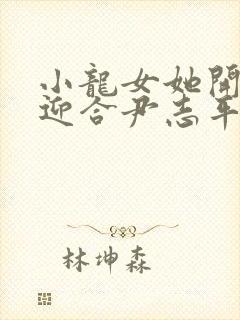 小龍女她開
迎合尹志平
林坤森